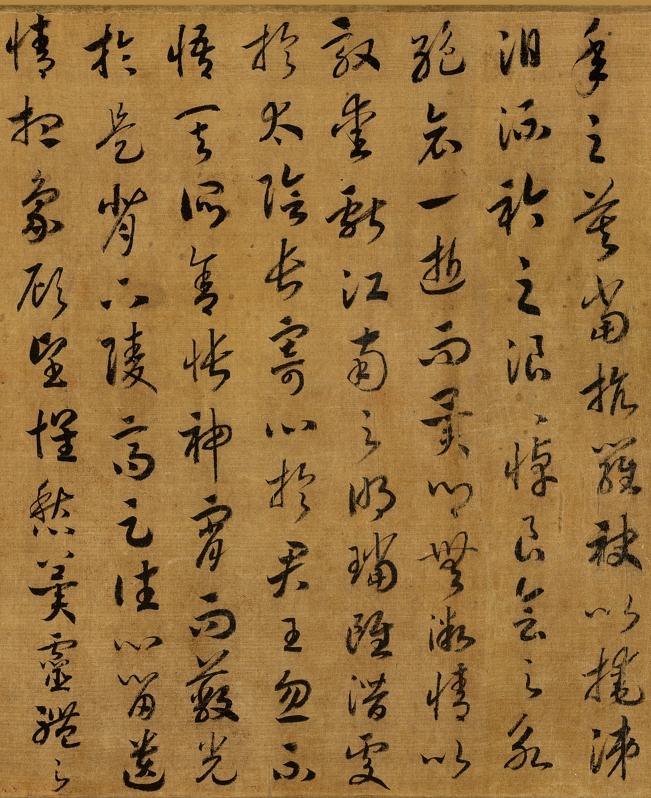 年之莫當抗羅袂以掩涕
泪流衿之浪〻悼良會之永
絕哀一逝而異鄉無微情以
效愛獻江南之明璫雖潛處
於太陰長寄心於君王忽不
悟其所舍悵神宵而蔽光
於是背下陵高足往心留遺
情想象顧望懷愁冀靈體之